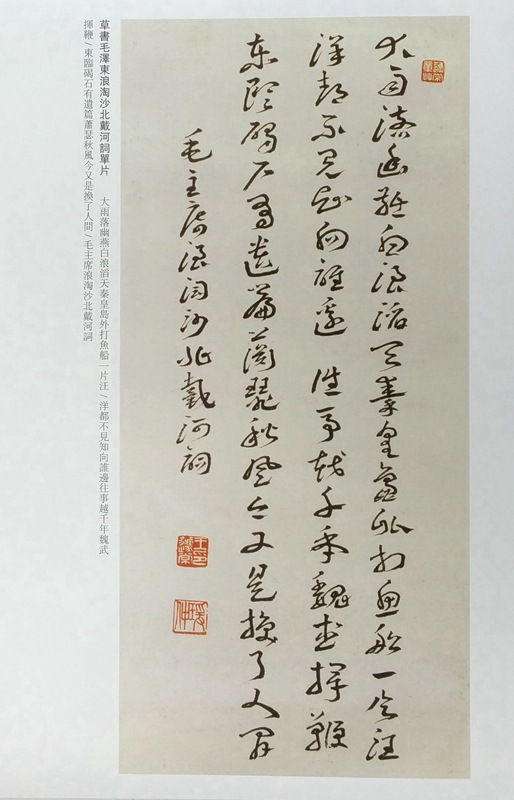 大雨落幽燕白浪滔天秦皇島外打魚船一片汪
洋都不見知向誰邊 往事越千年魏武揮鞭
東臨碣石有遺篇蕭瑟秋風今又是換了人間
毛主席浪淘沙北戴河詞
王印蘧常
瑗仲
草書毛澤東浪淘沙北戴河詞單片 大雨落幽燕白浪滔天秦皇島外打魚船一片汪/洋都不見知向誰邊往事越千年魏武
揮鞭/東臨碣石有遺篇蕭瑟秋風今又是換了人間/毛主席浪淘沙北戴河詞